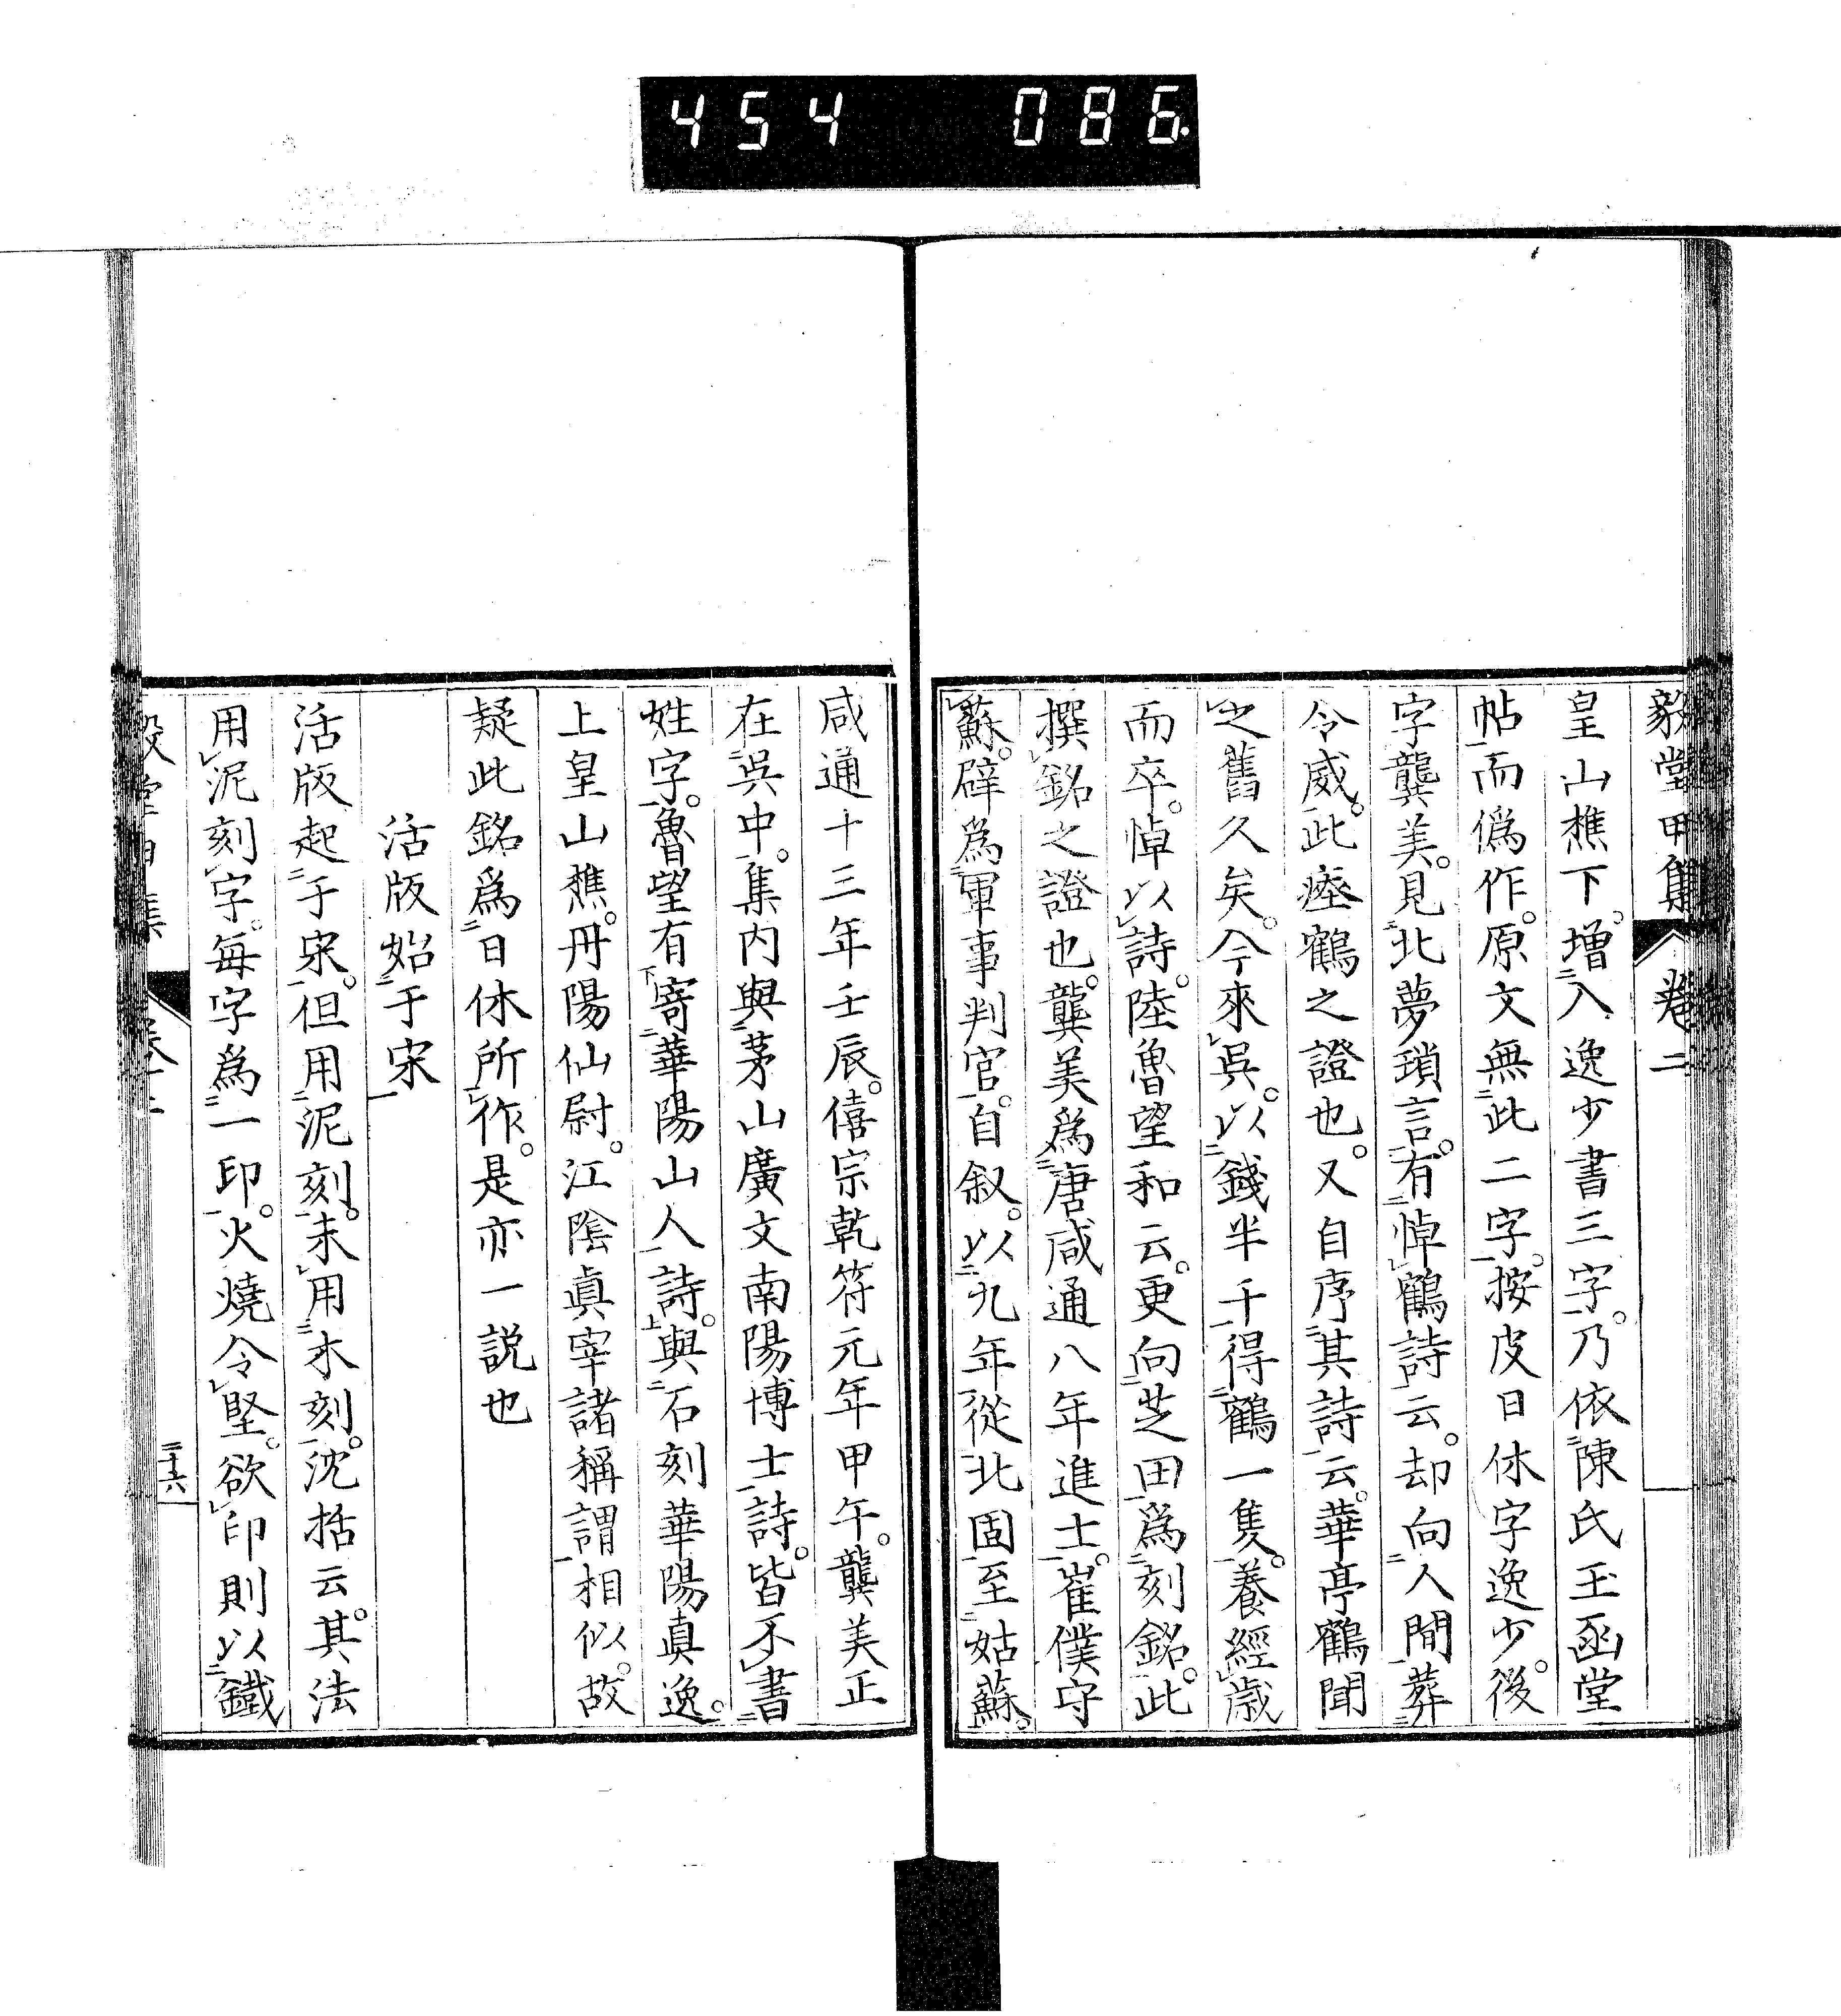 454 086
毅堂甲集 卷二
皇山樵下。增入逸少書三字。乃依陳氏玉函堂
帖而僞作。原文無此二字。按皮日休字逸少。後
字龔美。見北夢瑣言。有悼鶴詩云。却向人間葬
令威。此瘞鶴之證也。又自序其詩云。華亭鶴聞
之舊久矣。今來吳。以錢半千得鶴一隻。養經歲
而卒。悼以詩。陸魯望和云。更向芝田爲刻銘。此
撰銘之證也。龔美爲唐咸通八年進士。崔僕守
蘇。辟爲軍事判官。自叙。以九年從北固至姑蘇。
咸通十三年壬辰。僖宗乾符元年甲午。龔美正
在吳中。集内與茅山廣文南陽博士詩。皆不書
姓字。魯望有寄華陽山人詩。與石刻華陽眞逸。
上皇山樵。丹陽仙尉。江陰眞宰諸稱謂相似。故
疑此銘爲日休所作。是亦一説也
活版始于宋
活版起于宋。但用泥刻。未用木刻。沈括云。其法
用泥刻字。每字爲一印。火燒令堅。欲印則以鐵
毅堂甲集 卷二 三十六